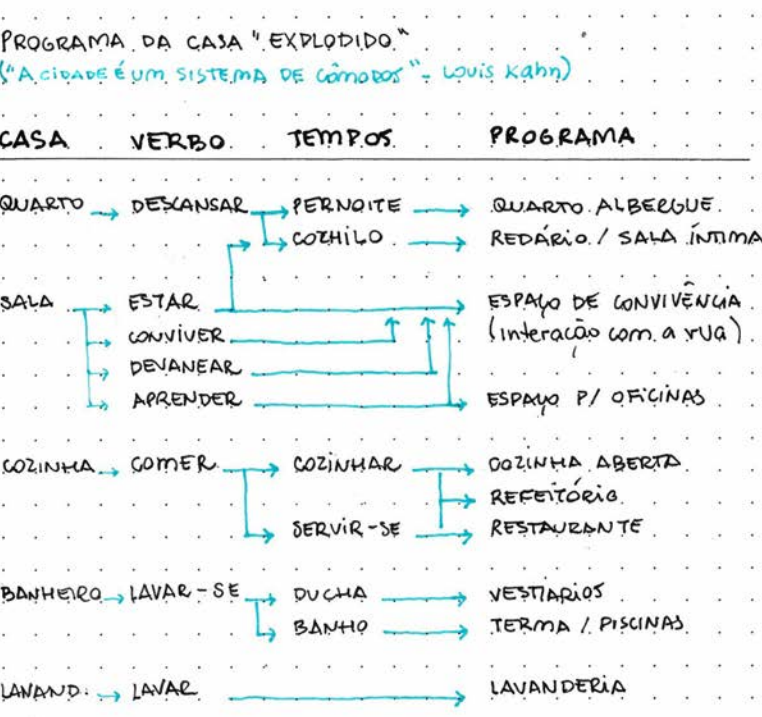 PROGRAMA DA CASA "EXPLODIDO"
("A CIDADE É UM SISTEMA DE CÔMODOS" - LOUIS KAHN)
CASA VERBO TEMPOS PROGRAMA
QUARTO → DESCANSAR → PERNOITE → QUARTO ALBERGUE
→ COCHILO → REDÁRIO / SALA ÍNTIMA
SALA → ESTAR → ESPAÇO DE CONVIVÊNCIA
→ CONVIVER (interação com a rua)
→ DEVANEAR
→ APRENDER → ESPAÇO P/ OFICINAS
COZINHA → COMER → COZINHAR → COZINHA ABERTA
→ REFEITÓRIO
→ SERVIR-SE → RESTAURANTE
BANHEIRO → LAVAR-SE → DUCHA → VESTIARIOS
→ BANHO → TERMA / PISCINAS
LAVAND. → LAVAR → LAVANDERIA